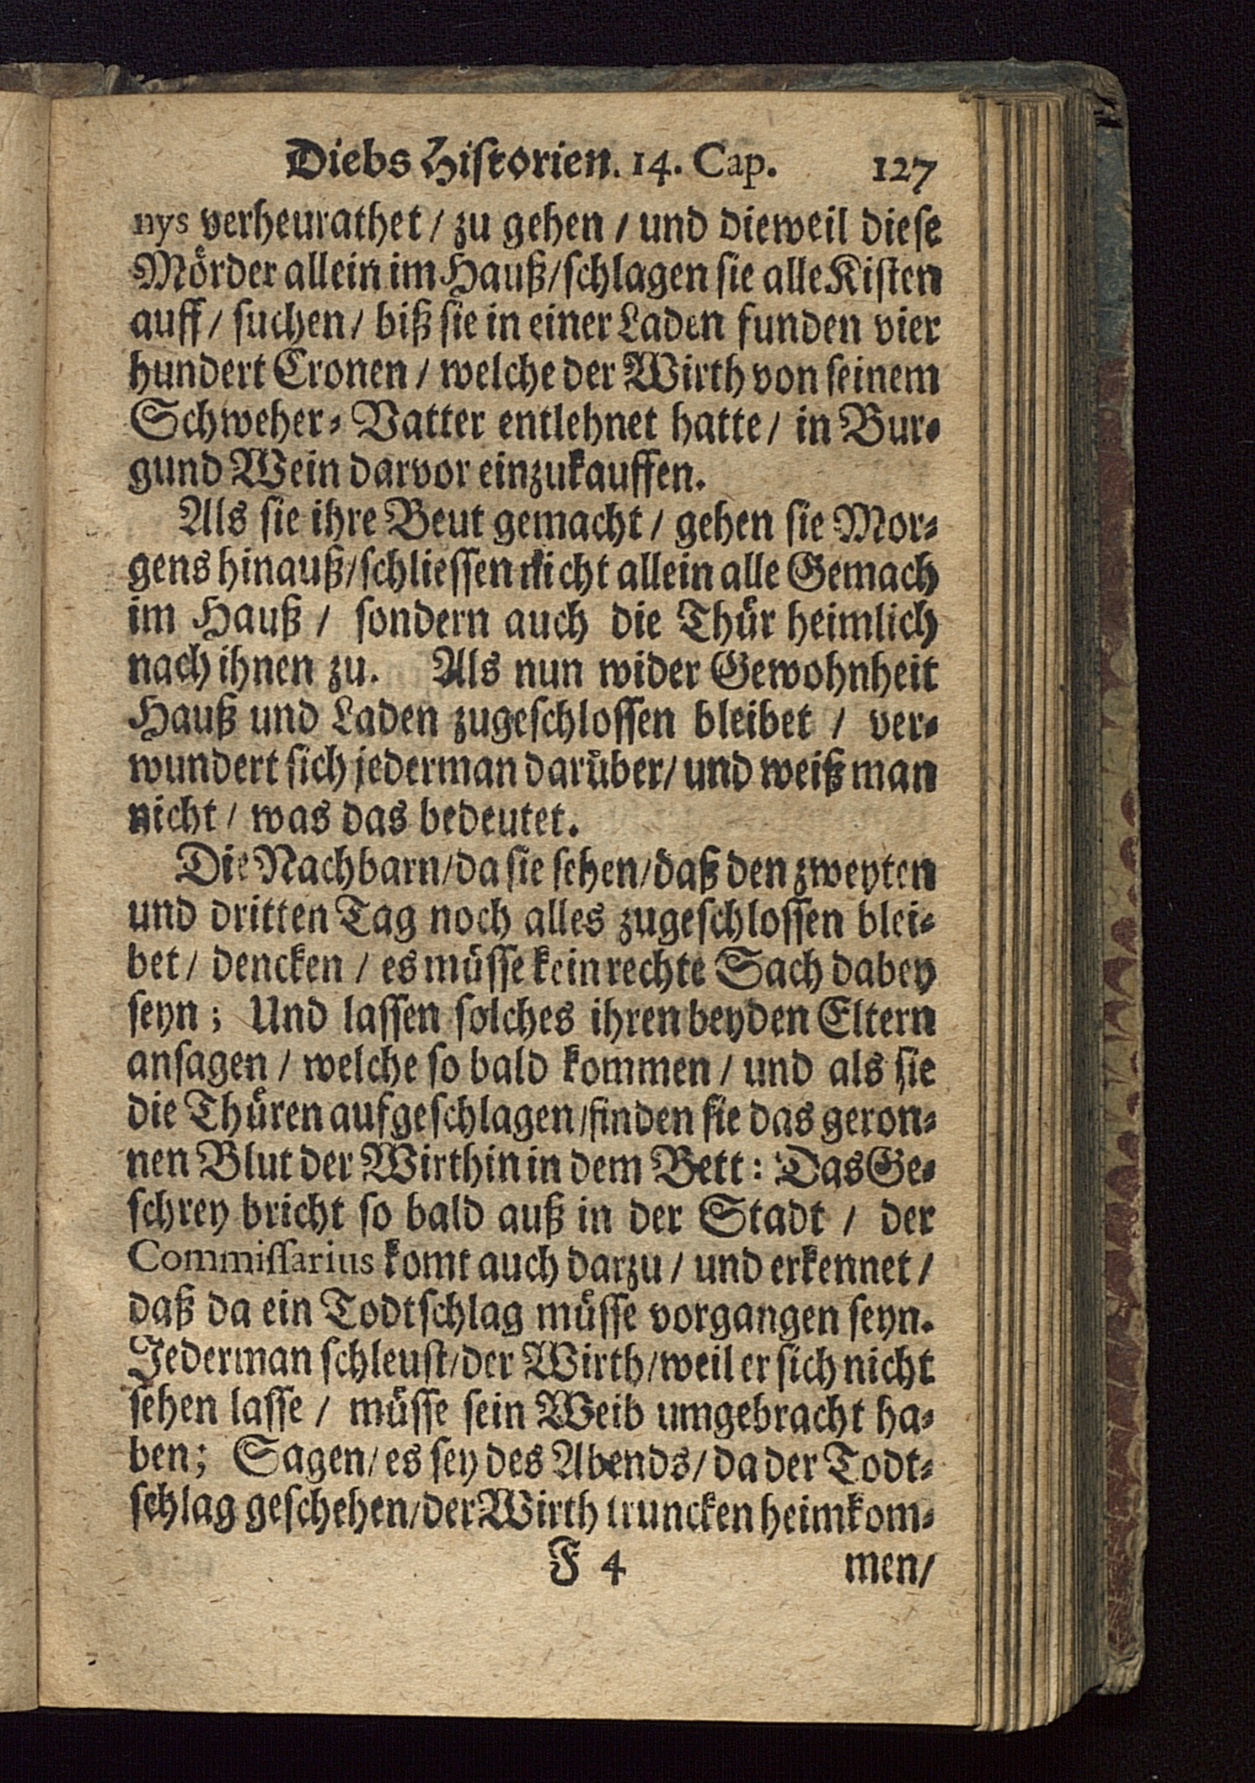 Diebs Historien. 14. Cap. 127
nys verheurathet / zu gehen / und dieweil diese
Mörder allein im Hauß / schlagen sie alle Kisten
auff / suchen / biß sie in einer Laden funden vier
hundert Cronen / welche der Wirth von seinem
Schweher- Vatter entlehnet hatte / in Bur-
gund Wein darvor einzukauffen.
Als sie ihre Beut gemacht / gehen sie Mor-
gens hinauß / schliessen nicht allein alle Gemach
im Hauß / sondern auch die Thür heimlich
nach ihnen zu. Als nun wider Gewohnheit
Hauß und Laden zugeschlossen bleibet / ver-
wundert sich jederman darüber / und weiß man
nicht / was das bedeutet.
Die Nachbarn / da sie sehen / daß den zweyten
und dritten Tag noch alles zugeschlossen blei-
bet / dencken / es müsse kein rechte Sach dabey
seyn ; Und lassen solches ihren beyden Eltern
ansagen / welche so bald kommen / und als sie
die Thüren aufgeschlagen / finden sie das geron-
nen Blut der Wirthin in dem Bett : Das Ge-
schrey bricht so bald auß in der Stadt / der
Commissarius komt auch darzu / und erkennet /
daß da ein Todtschlag müsse vorgangen seyn.
Jederman schleust / der Wirth / weil er sich nicht
sehen lasse / müsse sein Weib umgebracht ha-
ben ; Sagen / es sey des Abends / da der Todt-
schlag geschehen / der Wirth truncken heimkom-
F 4 men /